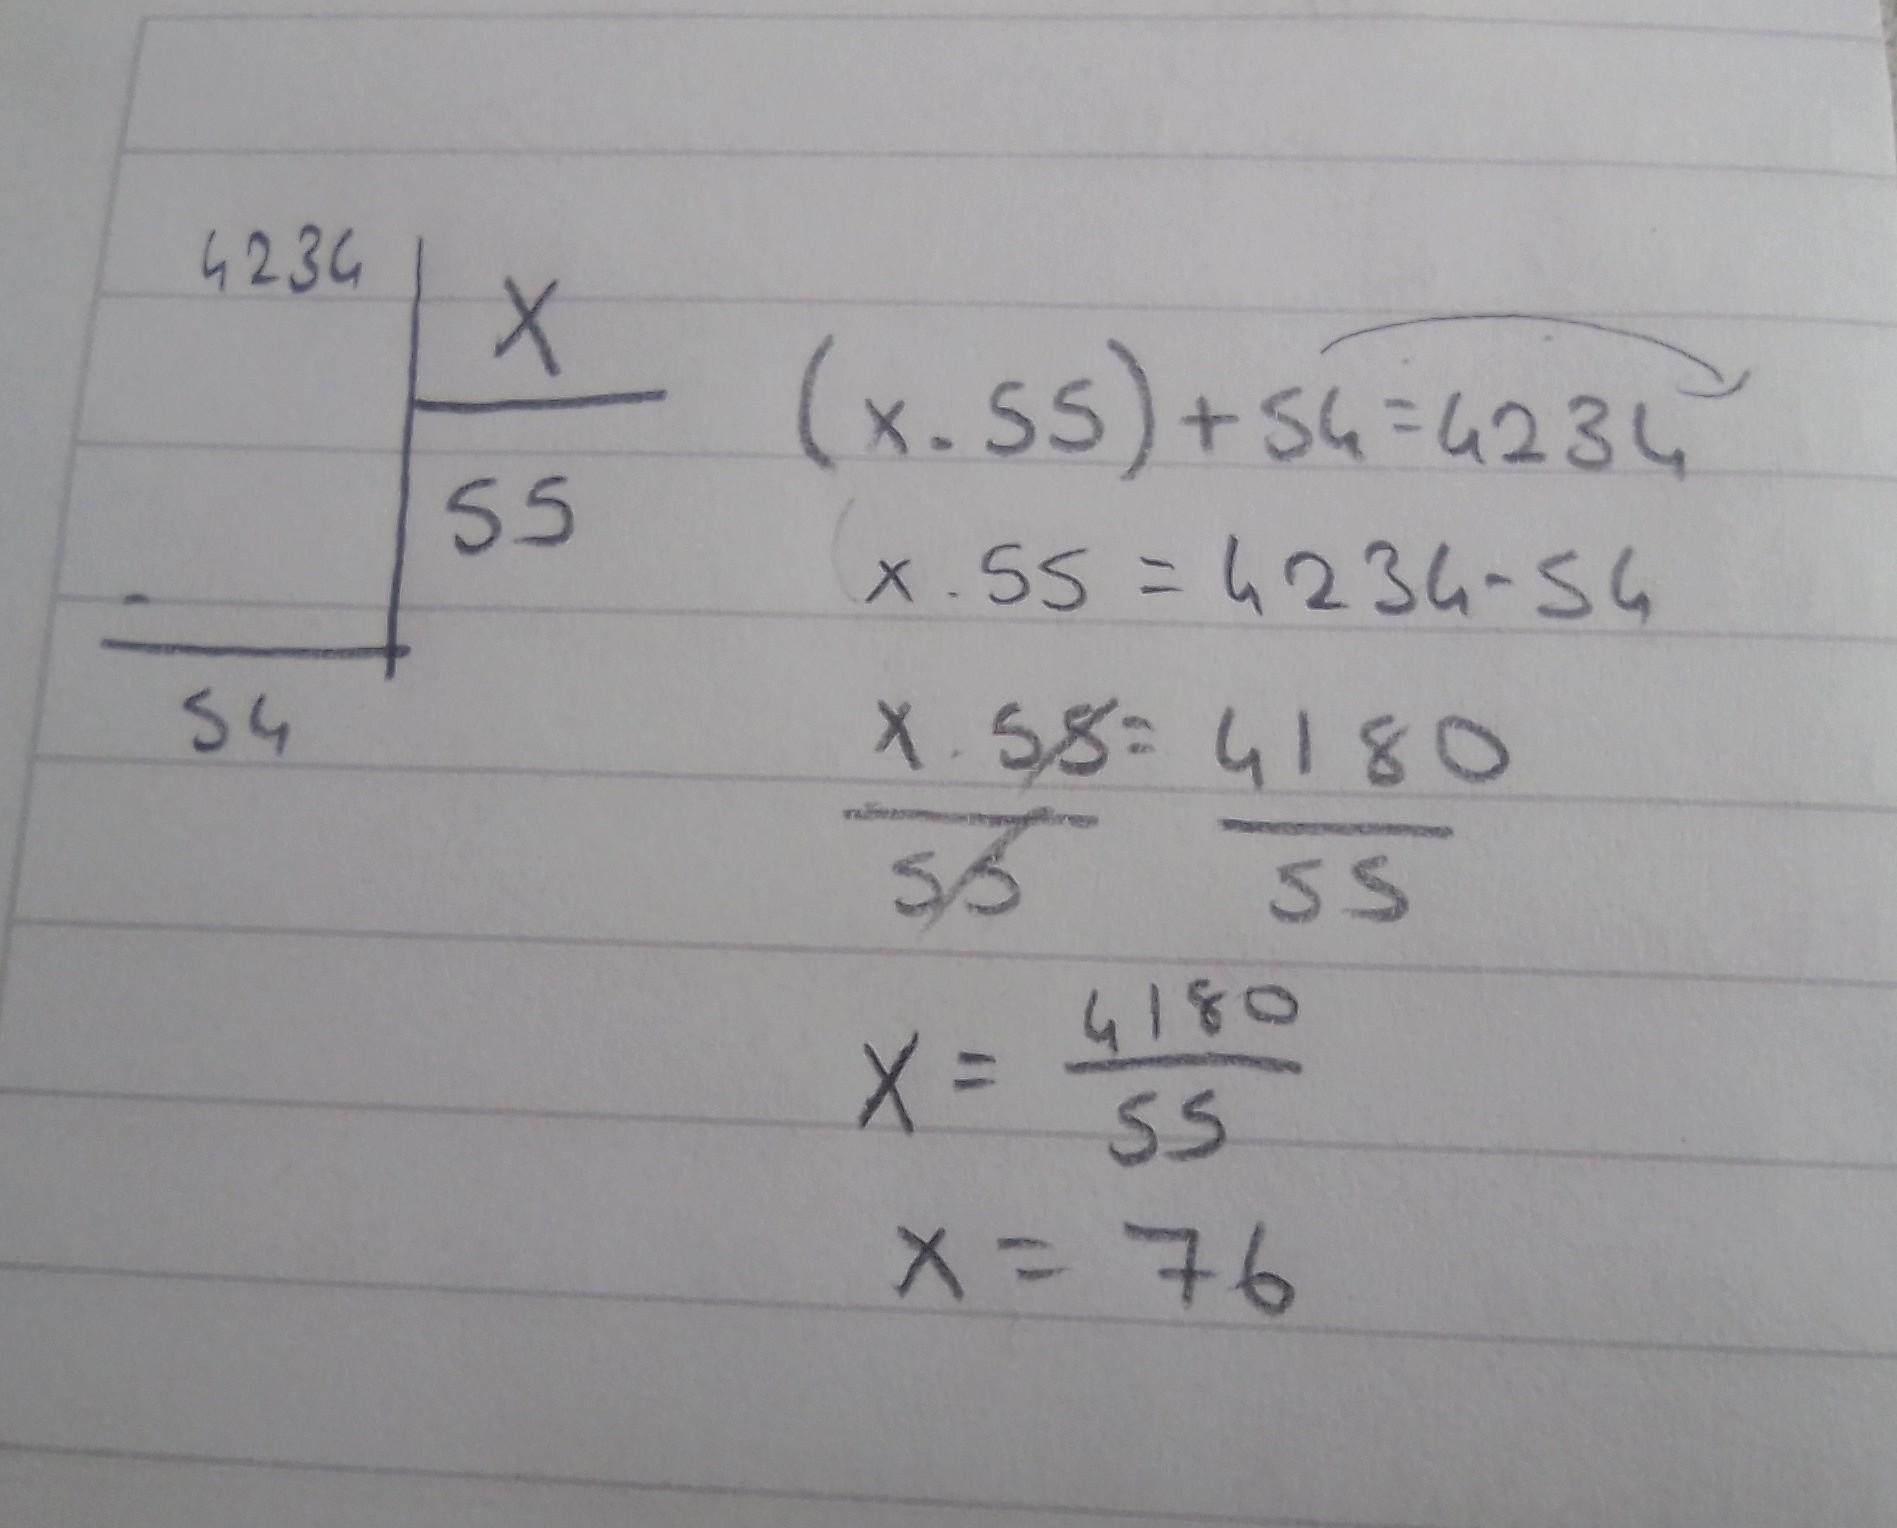 4234
X
55
-
54
(x.55)+54=4234
x.55=4234-54
x.55=4180
55 55
X=4180
55
x=76